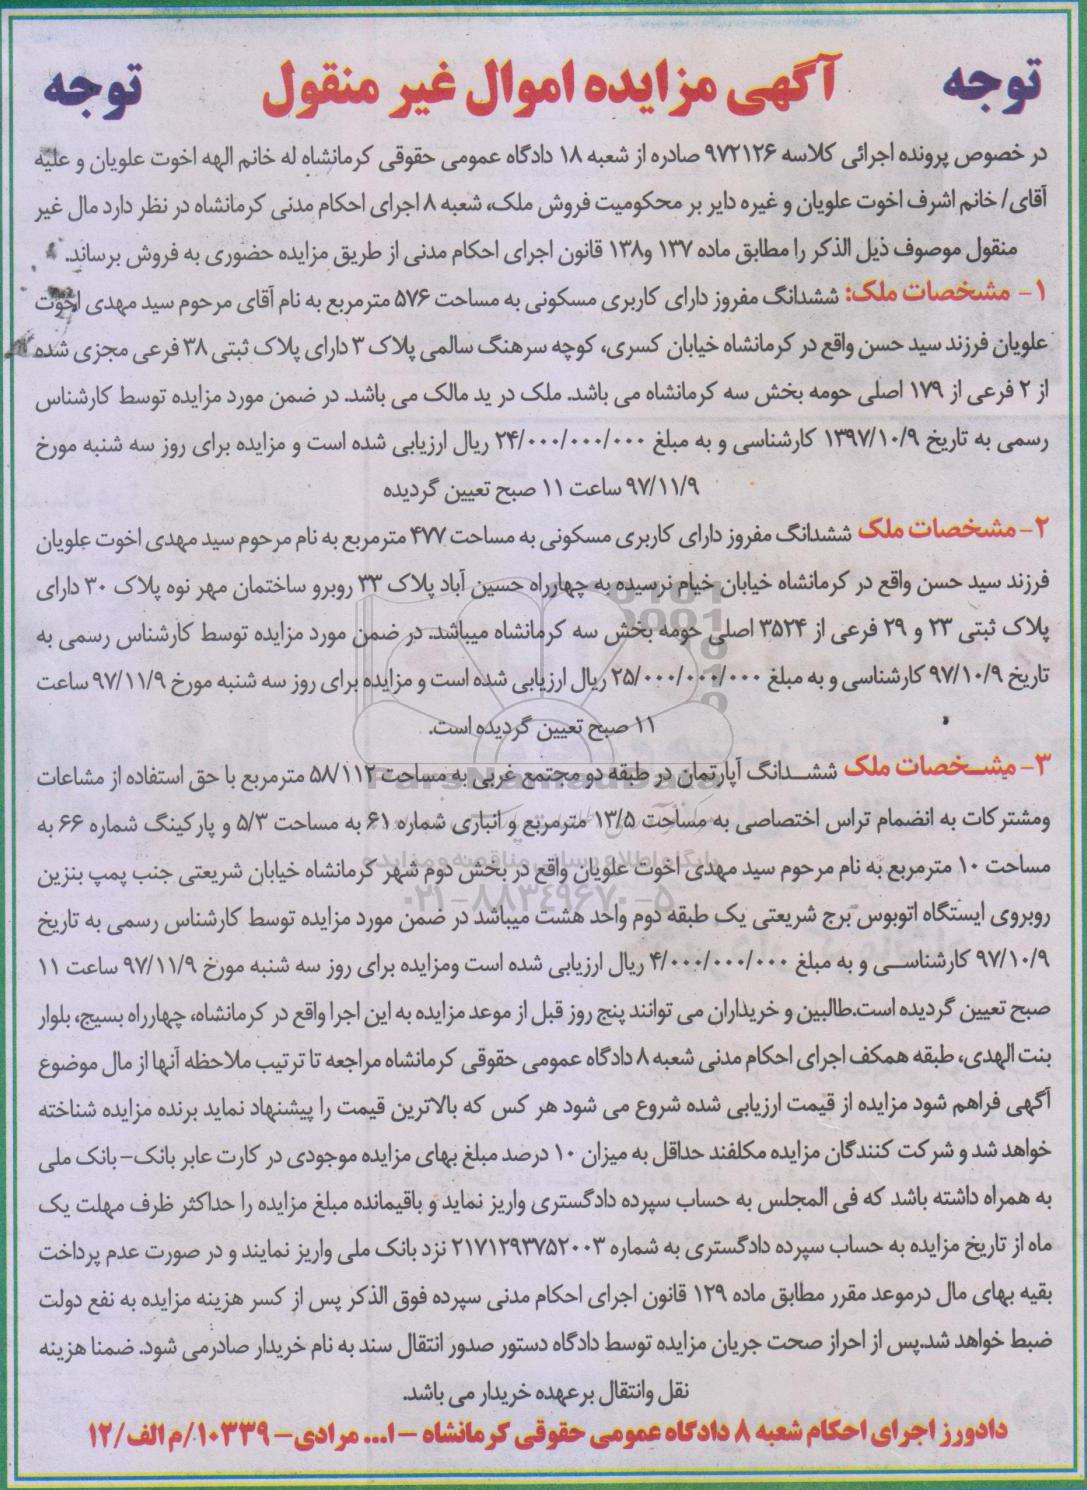 توجه آگهی مزایده اموال غیر منقول توجه
در خصوص پرونده اجرائی کلاسه ۹۷۲۱۲۶ صادره از شعبه ۱۸ دادگاه عمومی حقوقی کرمانشاه له خانم الهه اخوت علویان و علیه
آقای/ خانم اشرف اخوت علویان و غیره دایر بر محکومیت فروش ملک، شعبه ۸ اجرای احکام مدنی کرمانشاه در نظر دارد مال غیر
منقول موصوف ذیل الذکر را مطابق ماده ۱۳۷ و۱۳۸ قانون اجرای احکام مدنی از طریق مزایده حضوری به فروش برساند.
۱- مشخصات ملک: ششدانگ مفروز دارای کاربری مسکونی به مساحت ۵۷۶ مترمربع به نام آقای مرحوم سید مهدی اخوت
علویان فرزند سید حسن واقع در کرمانشاه خیابان کسری، کوچه سرهنگ سالمی پلاک ۳ دارای پلاک ثبتی ۳۸ فرعی مجزی شده
از ۲ فرعی از ۱۷۹ اصلی حومه بخش سه کرمانشاه می باشد. ملک در ید مالک می باشد. در ضمن مورد مزایده توسط کارشناس
رسمی به تاریخ ۱۳۹۷/۱۰/۹ کارشناسی و به مبلغ ۲۴/۰۰۰/۰۰۰/۰۰۰ ریال ارزیابی شده است و مزایده برای روز سه شنبه مورخ
۹۷/۱۱/۹ ساعت ۱۱ صبح تعیین گردیده
۲- مشخصات ملک ششدانگ مفروز دارای کاربری مسکونی به مساحت ۴۷۷ مترمربع به نام مرحوم سید مهدی اخوت علویان
فرزند سید حسن واقع در کرمانشاه خیابان خیام نرسیده به چهارراه حسین آباد پلاک ۳۳ روبرو ساختمان مهر نوه پلاک ۳۰ دارای
پلاک ثبتی ۲۳ و ۲۹ فرعی از ۳۵۲۴ اصلی حومه بخش سه کرمانشاه میباشد. در ضمن مورد مزایده توسط کارشناس رسمی به
تاریخ ۹۷/۱۰/۹ کارشناسی و به مبلغ ۲۵/۰۰۰/۰۰۰/۰۰۰ ریال ارزیابی شده است و مزایده برای روز سه شنبه مورخ ۹۷/۱۱/۹ ساعت
۱۱ صبح تعیین گردیده است.
۳- مشخصات ملک ششدانگ آپارتمان در طبقه دو مجتمع غربی به مساحت ۵۸/۱۱۲ مترمربع با حق استفاده از مشاعات
ParsNamadData
ومشترکات به انضمام تراس اختصاصی به مساحت ۱۳/۵ مترمربع و انباری شماره ۶۱ به مساحت ۵/۳ و پارکینگ شماره ۶۶ به
پایگاه اطلاع رسانی مناقصه و مزایده
مساحت ۱۰ مترمربع به نام مرحوم سید مهدی اخوت علویان واقع در بخش دوم شهر کرمانشاه خیابان شریعتی جنب پمپ بنزین
۰۲۱-۸۸۳۴۹۶۷۰-۵
روبروی ایستگاه اتوبوس برج شریعتی یک طبقه دوم واحد هشت میباشد در ضمن مورد مزایده توسط کارشناس رسمی به تاریخ
۹۷/۱۰/۹ کارشناسی و به مبلغ ۴/۰۰۰/۰۰۰/۰۰۰ ریال ارزیابی شده است ومزایده برای روز سه شنبه مورخ ۹۷/۱۱/۹ ساعت ۱۱
صبح تعیین گردیده است.طالبین و خریداران می توانند پنج روز قبل از موعد مزایده به این اجرا واقع در کرمانشاه، چهارراه بسیج، بلوار
بنت الهدی، طبقه همکف اجرای احکام مدنی شعبه ۸ دادگاه عمومی حقوقی کرمانشاه مراجعه تا ترتیب ملاحظه آنها از مال موضوع
آگهی فراهم شود مزایده از قیمت ارزیابی شده شروع می شود هر کس که بالاترین قیمت را پیشنهاد نماید برنده مزایده شناخته
خواهد شد و شرکت کنندگان مزایده مکلفند حداقل به میزان ۱۰ درصد مبلغ بهای مزایده موجودی در کارت عابر بانک- بانک ملی
به همراه داشته باشد که فی المجلس به حساب سپرده دادگستری واریز نماید و باقیمانده مبلغ مزایده را حداکثر ظرف مهلت یک
ماه از تاریخ مزایده به حساب سپرده دادگستری به شماره ۲۱۷۱۲۹۳۷۵۲۰۰۳ نزد بانک ملی واریز نمایند و در صورت عدم پرداخت
بقیه بهای مال درموعد مقرر مطابق ماده ۱۲۹ قانون اجرای احکام مدنی سپرده فوق الذکر پس از کسر هزینه مزایده به نفع دولت
ضبط خواهد شد.پس از احراز صحت جریان مزایده توسط دادگاه دستور صدور انتقال سند به نام خریدار صادرمی شود. ضمنا هزینه
نقل وانتقال برعهده خریدار می باشد.
دادورز اجرای احکام شعبه ۸ دادگاه عمومی حقوقی کرمانشاه - ا... مرادی- ۱۰۳۳۹/م الف/۱۲